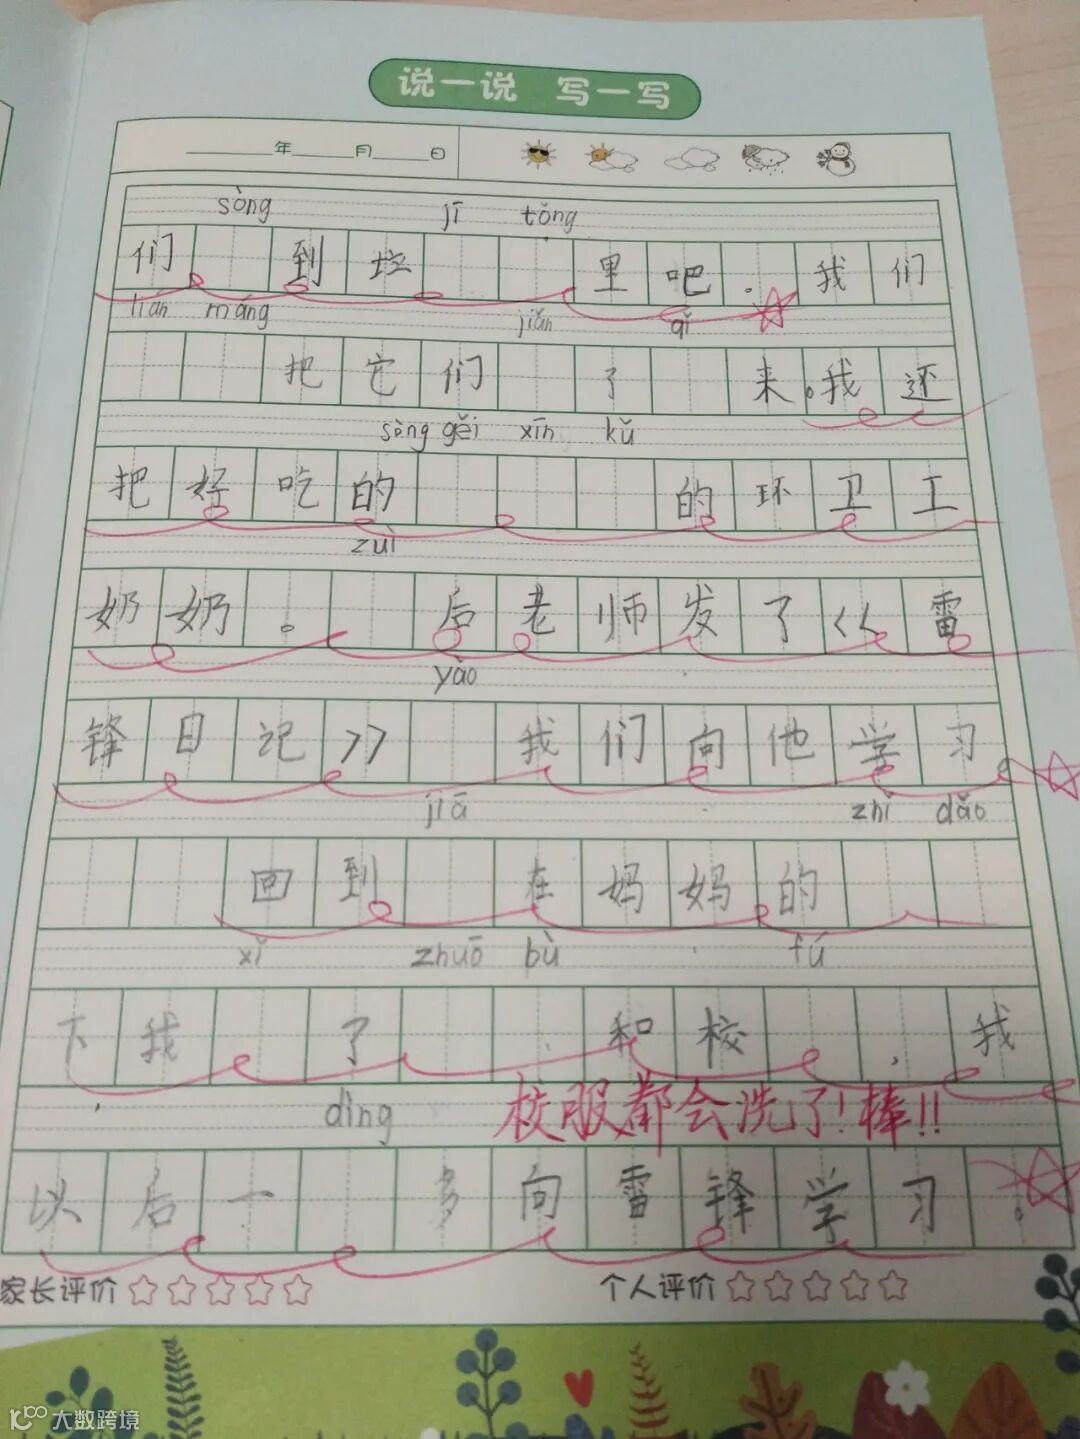 说一说 写一写
年 月 日
sòng jī tǒng
们 到垃 里吧.我们
lián máng jiǎn qǐ
把它们 了 来。我还
sòng gěi xīn kǔ
把好吃的 的环卫工
zuì
奶奶。 后老师发了《雷
yào
锋日记》 我们向他学习
jiā zhǐ dǎo
回到 在妈妈的
xǐ zhuō bù fú
下我 了 和校 ,我
dìng 校服都会洗了!棒!!
以后一 多向雷锋学习。
家长评价 个人评价
大数跨境